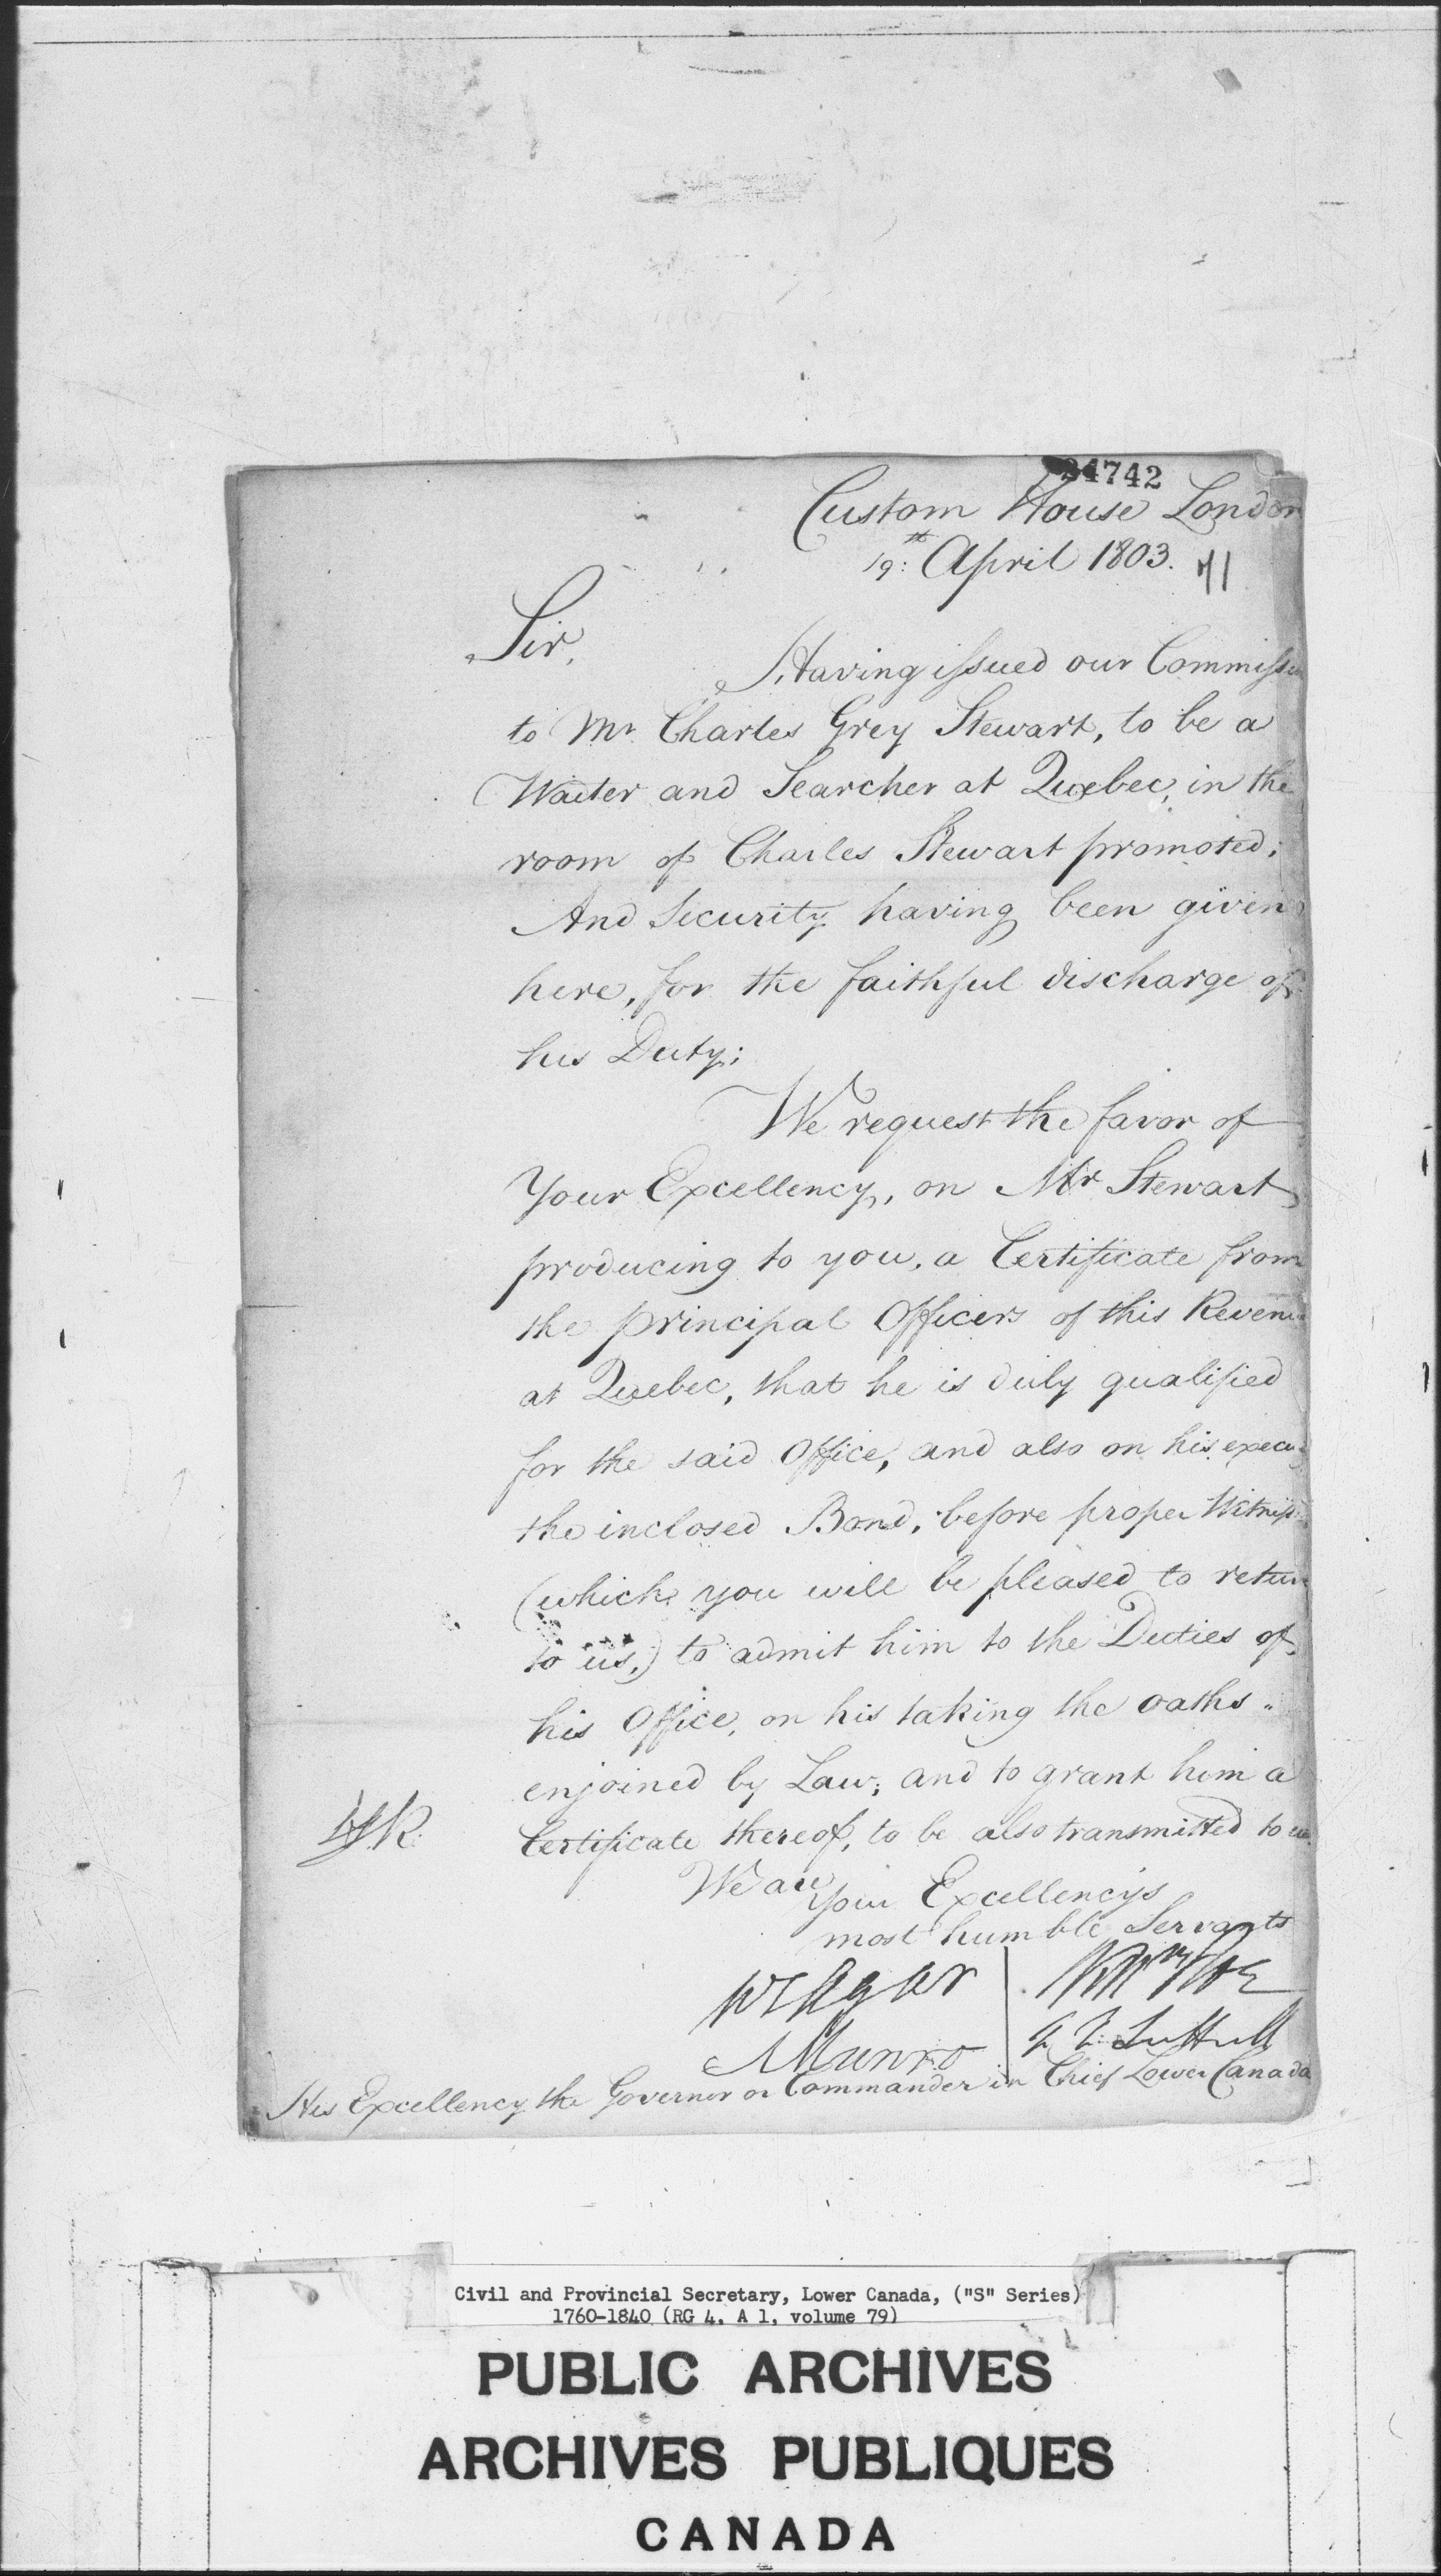 24742
Custom House London
19th: April 1803.
71
Sir,
Having issued our Commissi
to Mr Charles Grey Stewart, to be a
Waiter and Searcher at Quebec, in the
room of Charles Stewart promoted;
And Security having been given
here, for the faithful discharge of
his Duty;
We request the favor of
Your Excellency, on Mr Stewart
producing to you, a Certificate from
the principal Officers of this Revenue
at Quebec, that he is duly qualified
for the said Office, and also on his execu
the inclosed Bond, before proper Witness
(which you will be pleased to return
to us,) to admit him to the Duties of
his Office, on his taking the oaths
enjoined by Law; and to grant him a
Certificate thereof, to be also transmitted to us.
We are
Your Excellency's
most humble Servants
Wm Roe
Munro
His Excellency the Governor or Commander in Chief Lower Canada
Civil and Provincial Secretary, Lower Canada, ("S" Series)
1760-1840 (RG 4, A 1, volume 79)
PUBLIC ARCHIVES
ARCHIVES PUBLIQUES
CANADA